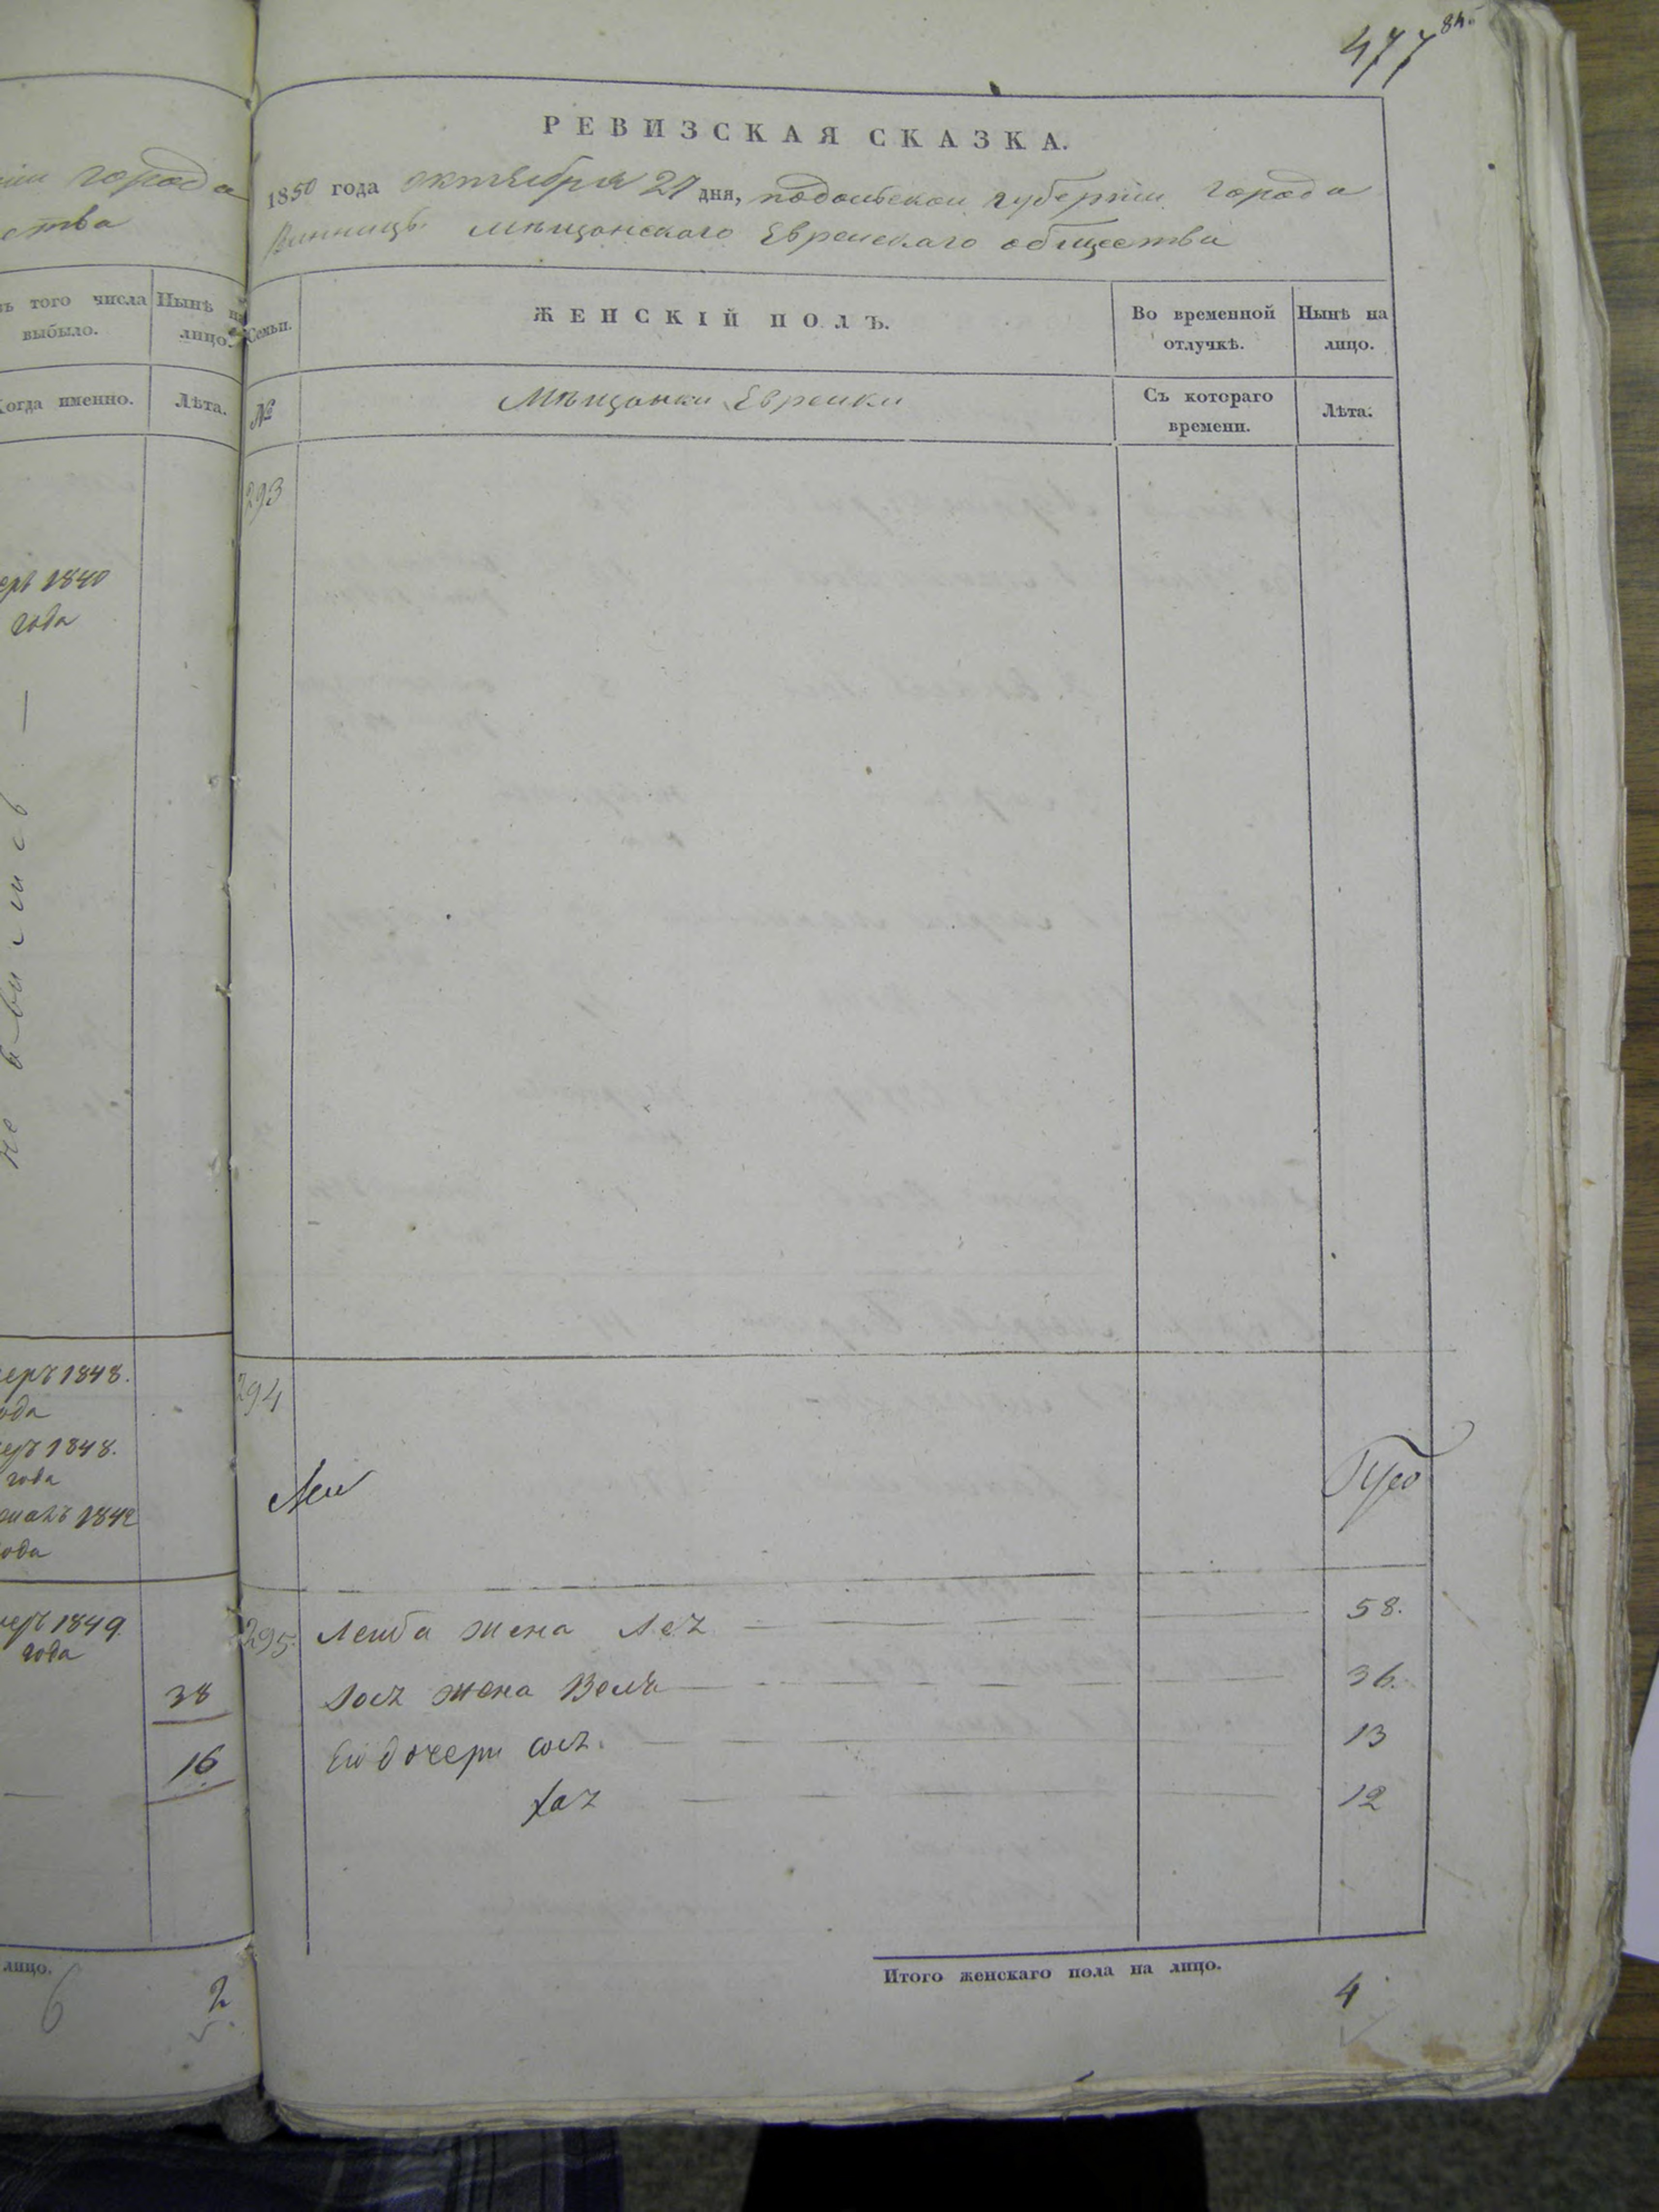 477 84.
РЕВИЗСКАЯ СКАЗКА.
1850 года октября 27 дня, подольской губерніи города
Винницы мѣщанского Еврейскаго общества
города
ства
того числа выбыло.
Нынѣ на лицо.
Когда именно.
Лѣта.
Семьи.
ЖЕНСКІЙ ПОЛЪ.
Во временной отлучкѣ.
Нынѣ на лицо.
№
Мѣщанки Еврейки
Съ котораго времени.
Лѣта.
293
1840
года
не явились —
294
1848.
года
1848.
года
1842
года
295. Лейба жена Лея 58.
1849
года
38
жена Бейла 36.
16
Его дочери 13
Хая 12
лицо.
6 2
Итого женскаго пола на лицо.
4